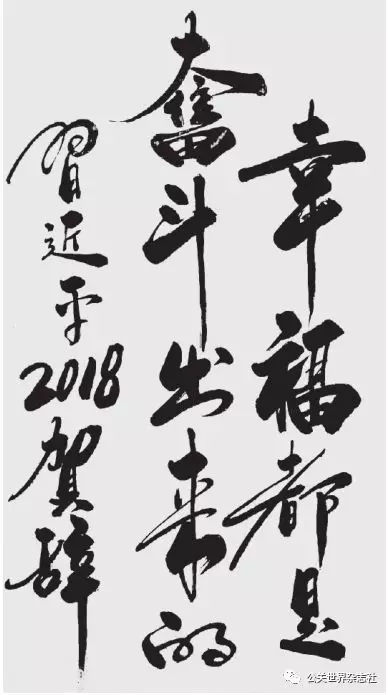 幸福都是
奮斗出来的
習近平2018賀辞
公关世界杂志社